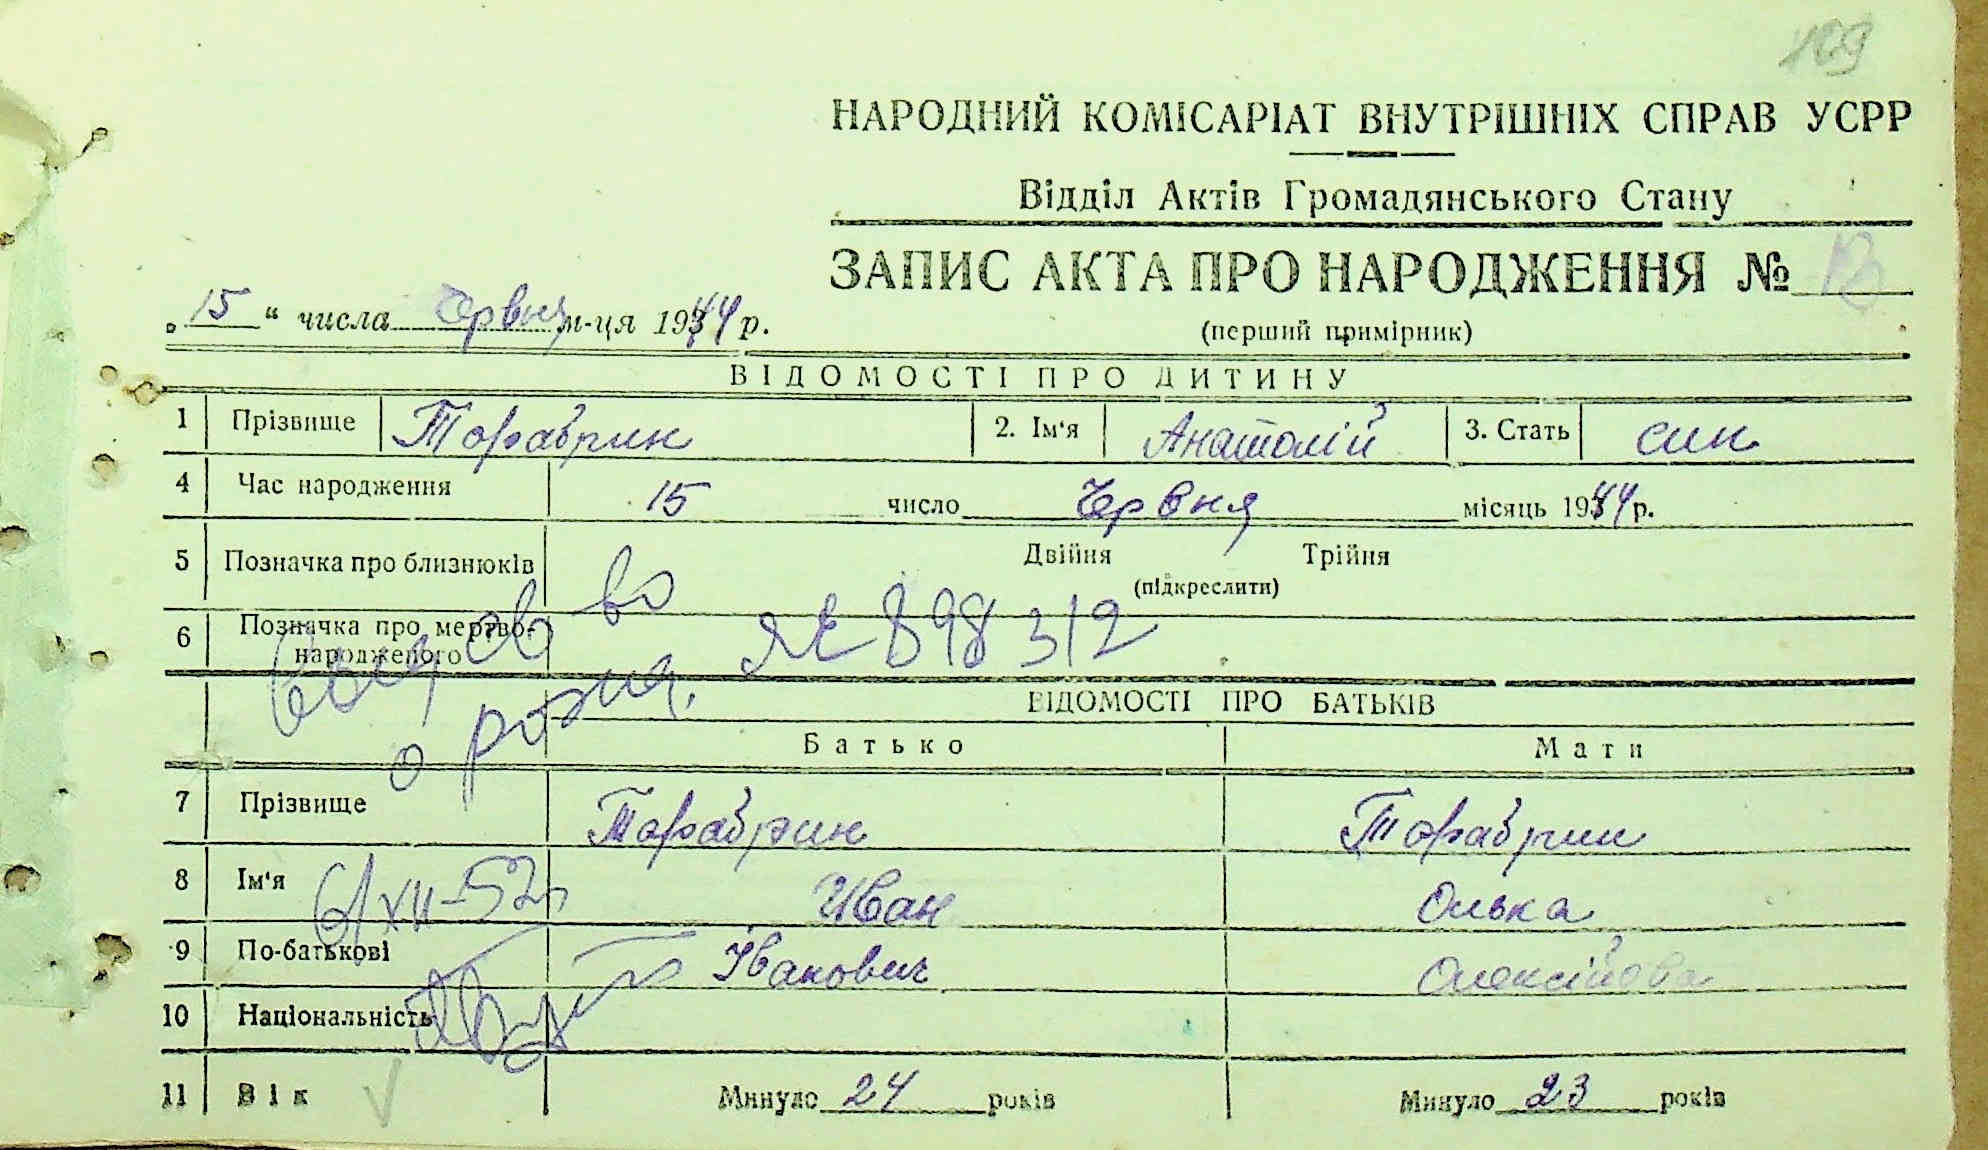 109
НАРОДНИЙ КОМІСАРІАТ ВНУТРІШНІХ СПРАВ УСРР
Відділ Актів Громадянського Стану
ЗАПИС АКТА ПРО НАРОДЖЕННЯ №
„15“ числа червня м-ця 1944 р.
(перший примірник)
ВІДОМОСТІ ПРО ДИТИНУ
1 Прізвище Тарабрин 2. Ім'я Анатолій 3. Стать син
4 Час народження 15 число Червня місяць 1944 р.
5 Позначка про близнюків Двійня Трійня
(підкреслити)
6 Позначка про мертво-
народженого
св во
о рожд. ЯЕ 898312
ВІДОМОСТІ ПРО БАТЬКІВ
Батько Мати
7 Прізвище Тарабрин Тарабрин
8 Ім'я Иван Олька
6/XII-52г
9 По-батькові Іванович Олексійова
10 Національність
11 Вік Минуло 24 років Минуло 23 років